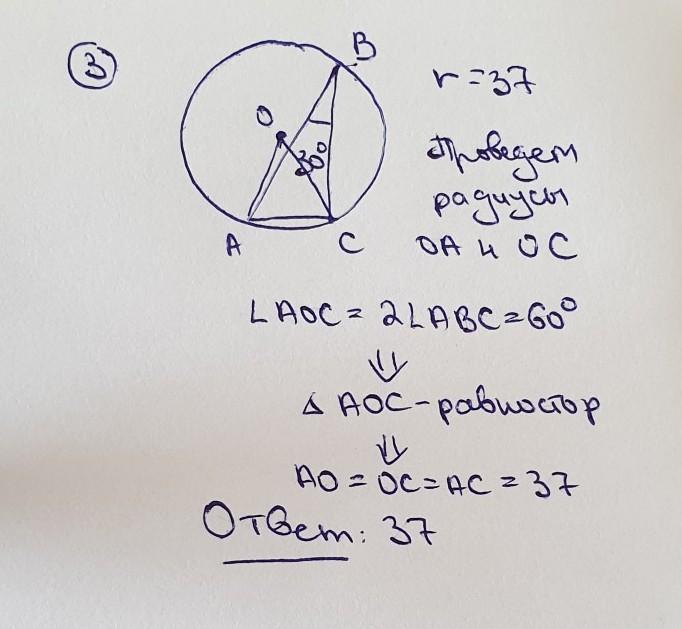 3
B
r = 37
O
30°
Проведем
радиусы
A
C
OA и OC
∠AOC = 2∠ABC = 60°
⇓
△ AOC - равностор
⇓
AO = OC = AC = 37
Ответ: 37